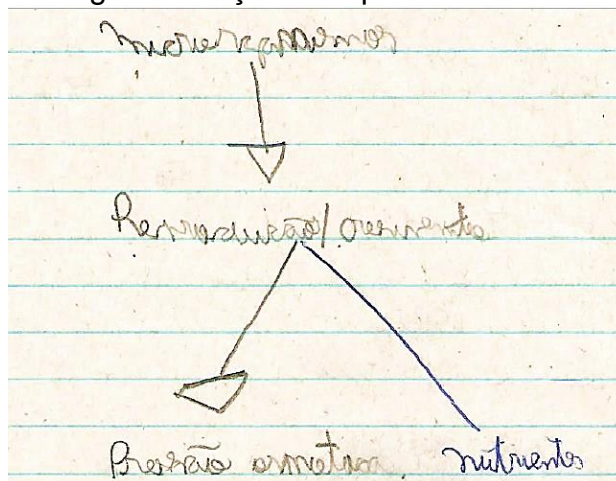 microrganismos
Reprodução/crescimento
Pressão osmótica. nutrientes